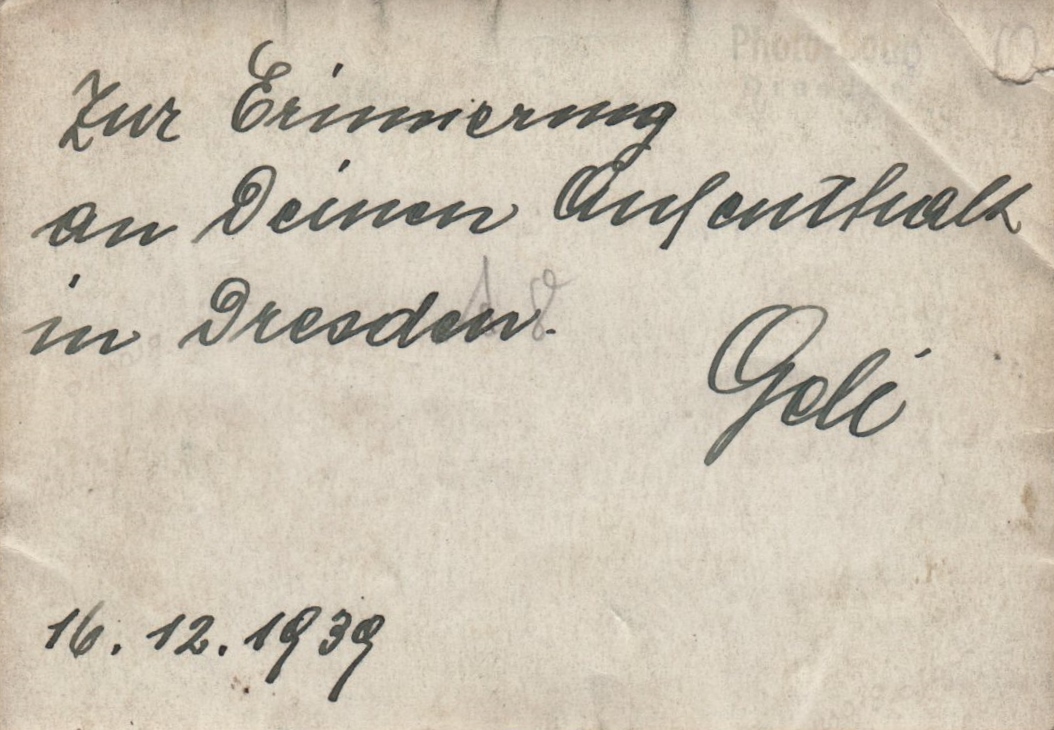 Photo
Dresden
Zur Erinnerung
an Deinen Aufenthalt
in Dresden.
Geli
16. 12. 1939